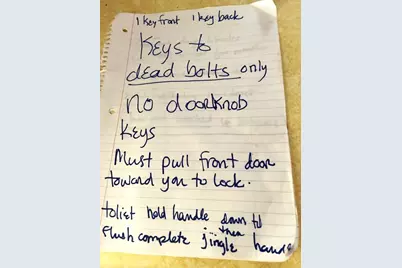 1 key front 1 key back
Keys to
dead bolts only
No doorknob
keys
Must pull front door
toward you to lock.
toliet hold handle down to
flush complete then
jingle handle